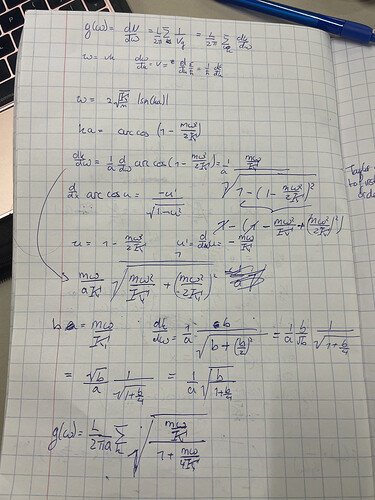 g(ω) = dN/dω = L/2π Σ 1/Vg = L/2π Σ_k dk/dω
ω = vk dω/dk = v = d/dk E/ħ = 1/ħ dE/dk
ω = 2 √(K/m) |sin(ka)|
ka = arccos (1 - mω²/2K)
dk/dω = 1/a d/dω arccos (1 - mω²/2K) = 1/a (mω/K) / √(1 - (1 - mω²/2K)²)
d/dx arccos u = -u' / √(1-u²)
1 - (1 - mω²/K + (mω²/2K)²)
u = 1 - mω²/2K u' = d/dω u = - mω/K
mω/aK 1/√(mω²/K + (mω²/2K)²)
b = mω/K dk/dω = 1/a b / √(b + (b/2)²) = 1/a b/√b 1/√(1+b/4)
= √b/a 1/√(1+b/4) = 1/a √(b/(1+b/4))
g(ω) = L/2πa Σ_k √((mω/K) / (1 + mω/4K))
Taylor